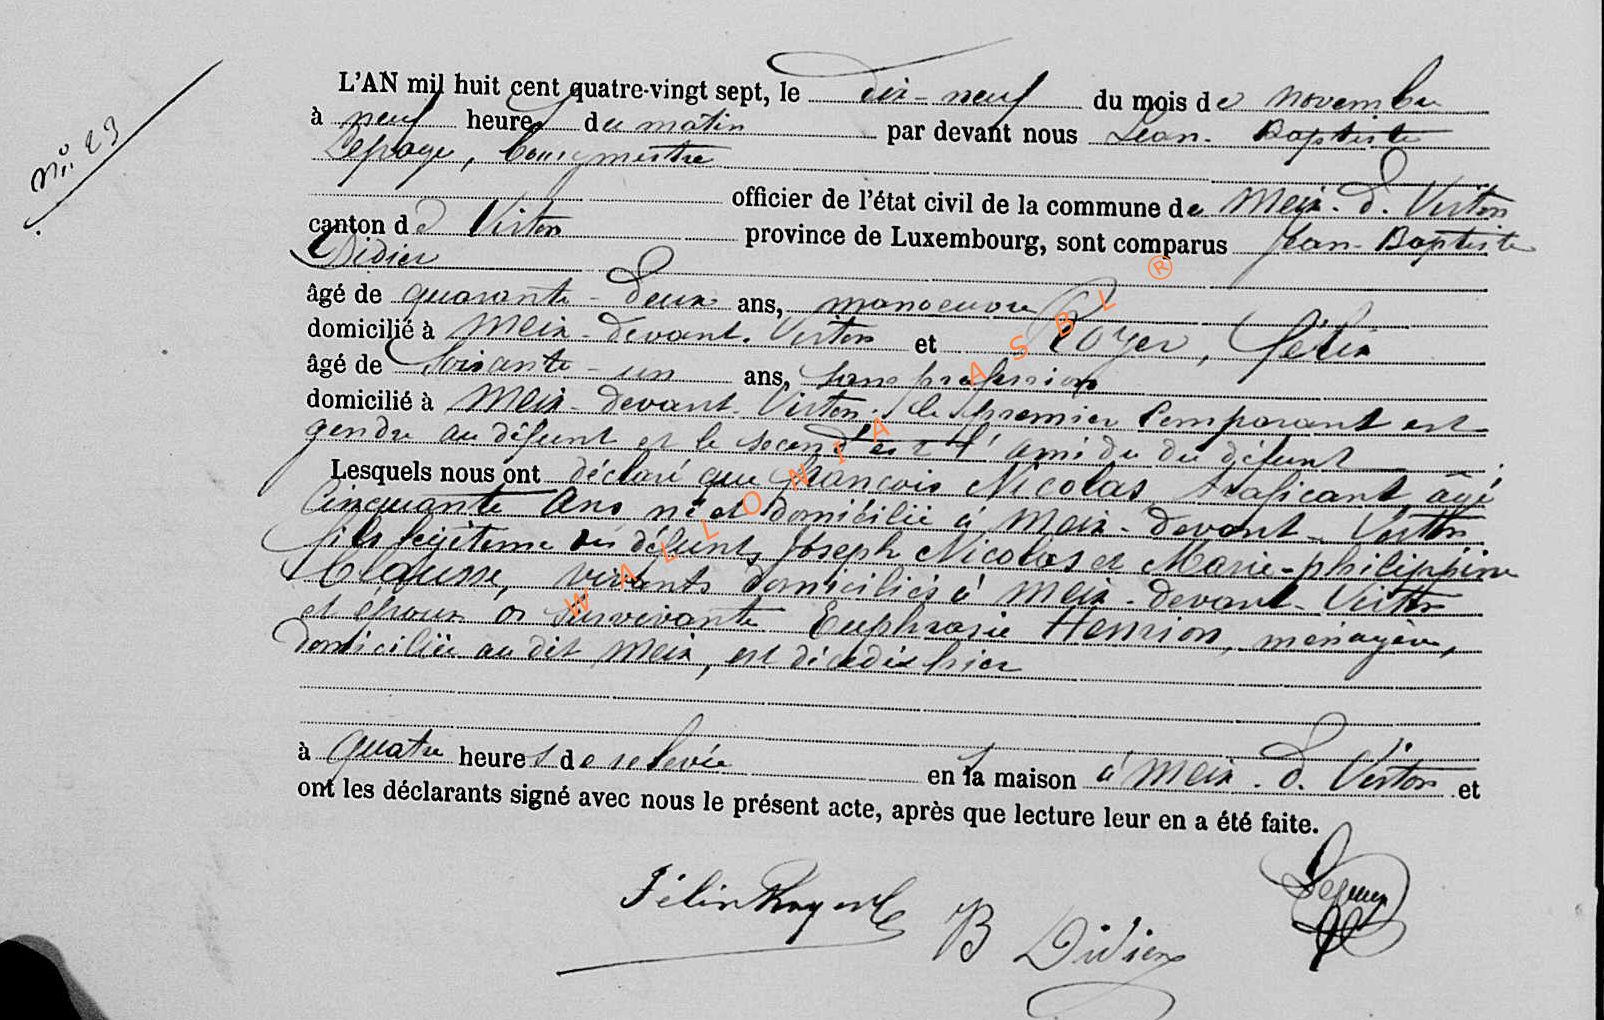 N° 23
L'AN mil huit cent quatre-vingt sept, le dix-neuf du mois de novembre
à neuf heures du matin par devant nous Jean-Baptiste
Lepage, bourgmestre
officier de l'état civil de la commune de Meix-d. Virton
canton de Virton province de Luxembourg, sont comparus Jean-Baptiste
Didier
âgé de quarante-deux ans, manoeuvre
domicilié à Meix-devant-Virton et Royer, Félix
âgé de soixante-un ans, sans profession
domicilié à Meix-devant-Virton. le premier comparant est
gendre au défunt et le second est l'ami du défunt
Lesquels nous ont déclaré que François Nicolas âgé
cinquante ans né et domicilié à Meix-devant-Virton
fils légitime des défunts Joseph Nicolas et Marie-philippine
vivants domiciliés à Meix-devant-Virton
et époux survivante Euphrasie Henrion, ménagère,
domiciliée au dit Meix, est décédé hier
à quatre heures de relevée en la maison à Meix-d. Virton et
ont les déclarants signé avec nous le présent acte, après que lecture leur en a été faite.
Félix Royer
JB Didier
WALLONIA ASBL ®